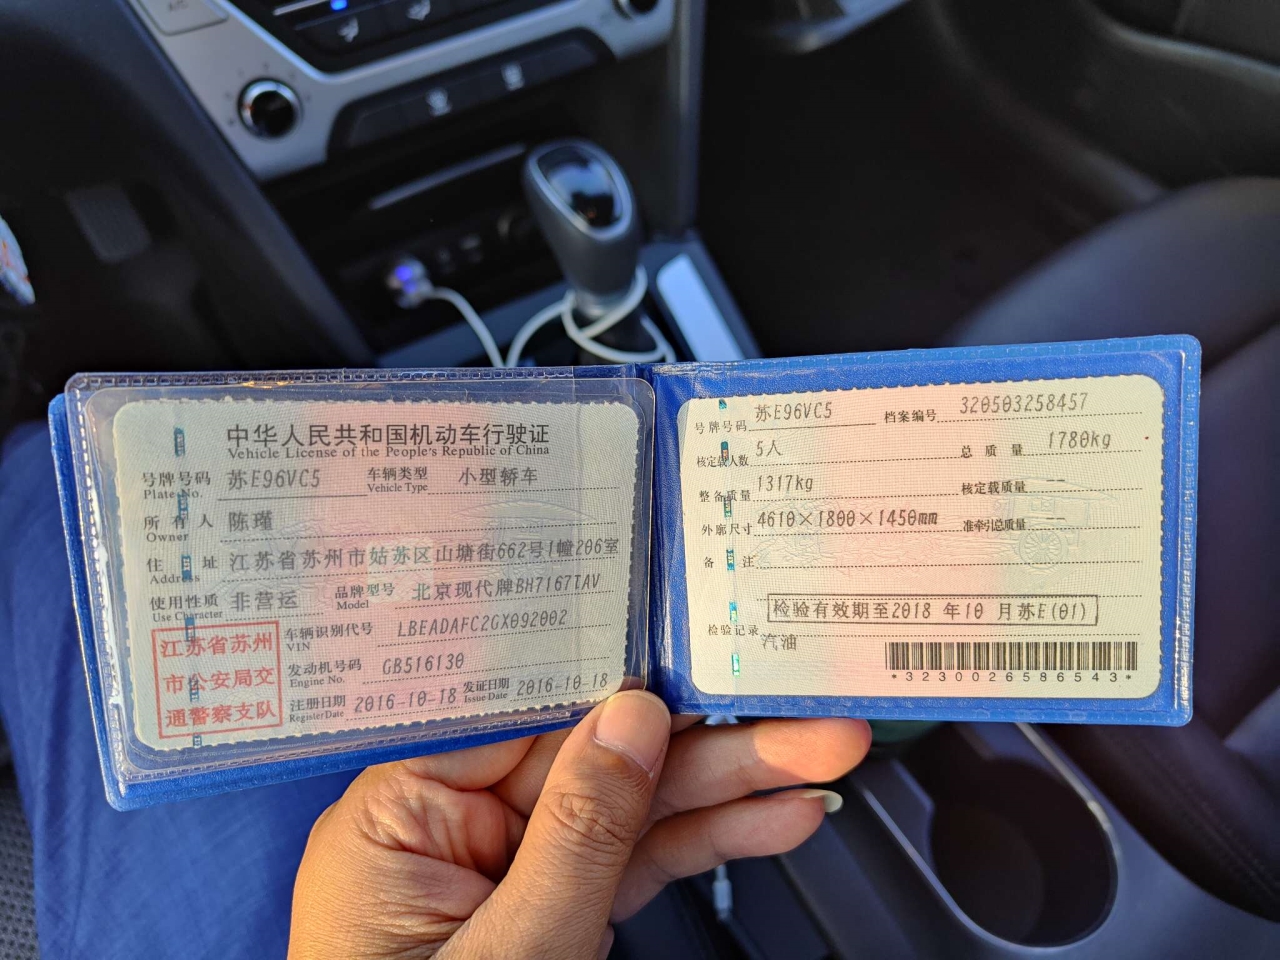 中华人民共和国机动车行驶证
Vehicle License of the People's Republic of China
号牌号码 苏E96VC5 车辆类型 小型轿车
Plate No. Vehicle Type
所有人 陈瑾
Owner
住址 江苏省苏州市姑苏区山塘街662号1幢206室
Address
使用性质 非营运 品牌型号 北京现代牌BH7167TAV
Use Character Model
江苏省苏州
市公安局交
通警察支队
车辆识别代号 LBEADAFC2GX092002
VIN
发动机号码 GB516130
Engine No.
注册日期 2016-10-18 发证日期 2016-10-18
Register Date Issue Date
号牌号码 苏E96VC5 档案编号 320503258457
核定载人数 5人 总质量 1780kg
整备质量 1317kg 核定载质量 --
外廓尺寸 4610×1800×1450mm 准牵引总质量 --
备注
检验有效期至2018 年10 月苏E(01)
检验记录
汽油
*3230026586543*